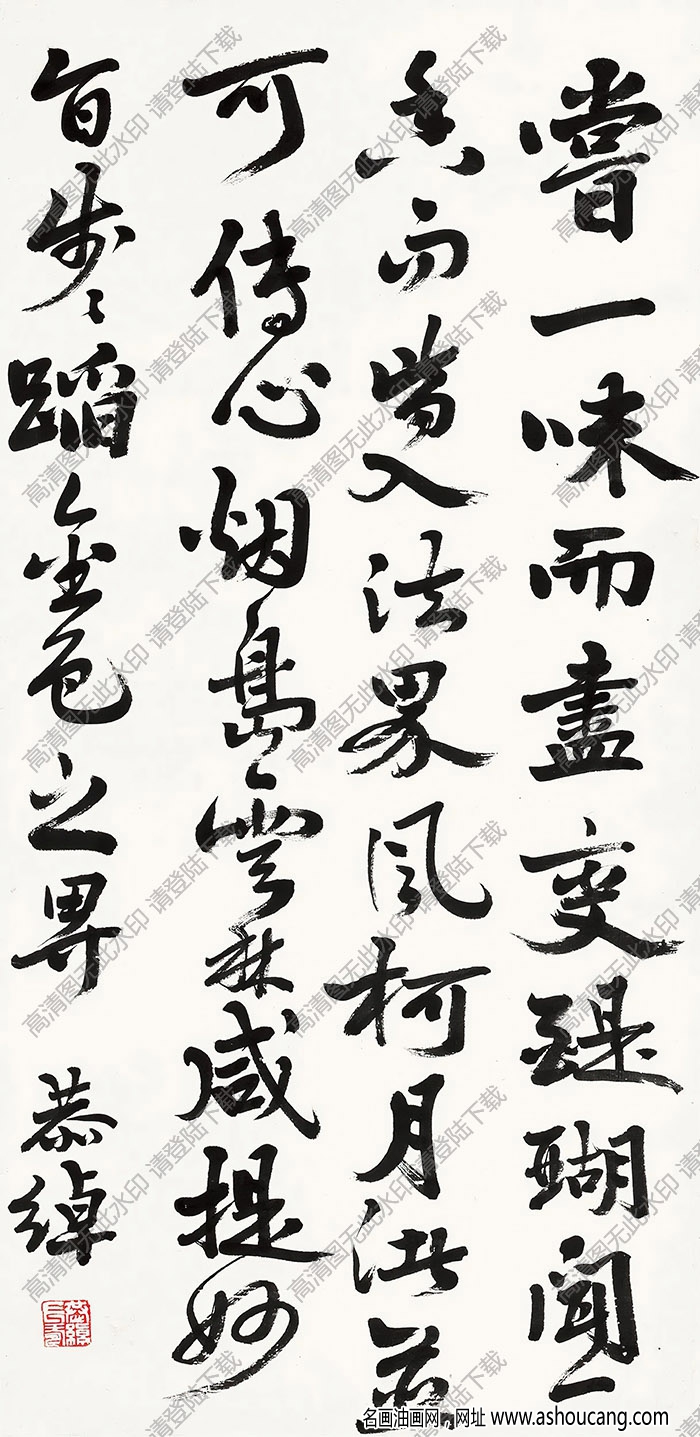 嘗一味而盡變醍醐聞一
香而皆入法界風柯月渚並
可傳心烟島雲林咸提妙
旨步々蹈金色之界
恭綽
高清图无此水印 请登陆下载
名画油画网，网址 www.ashoucang.com